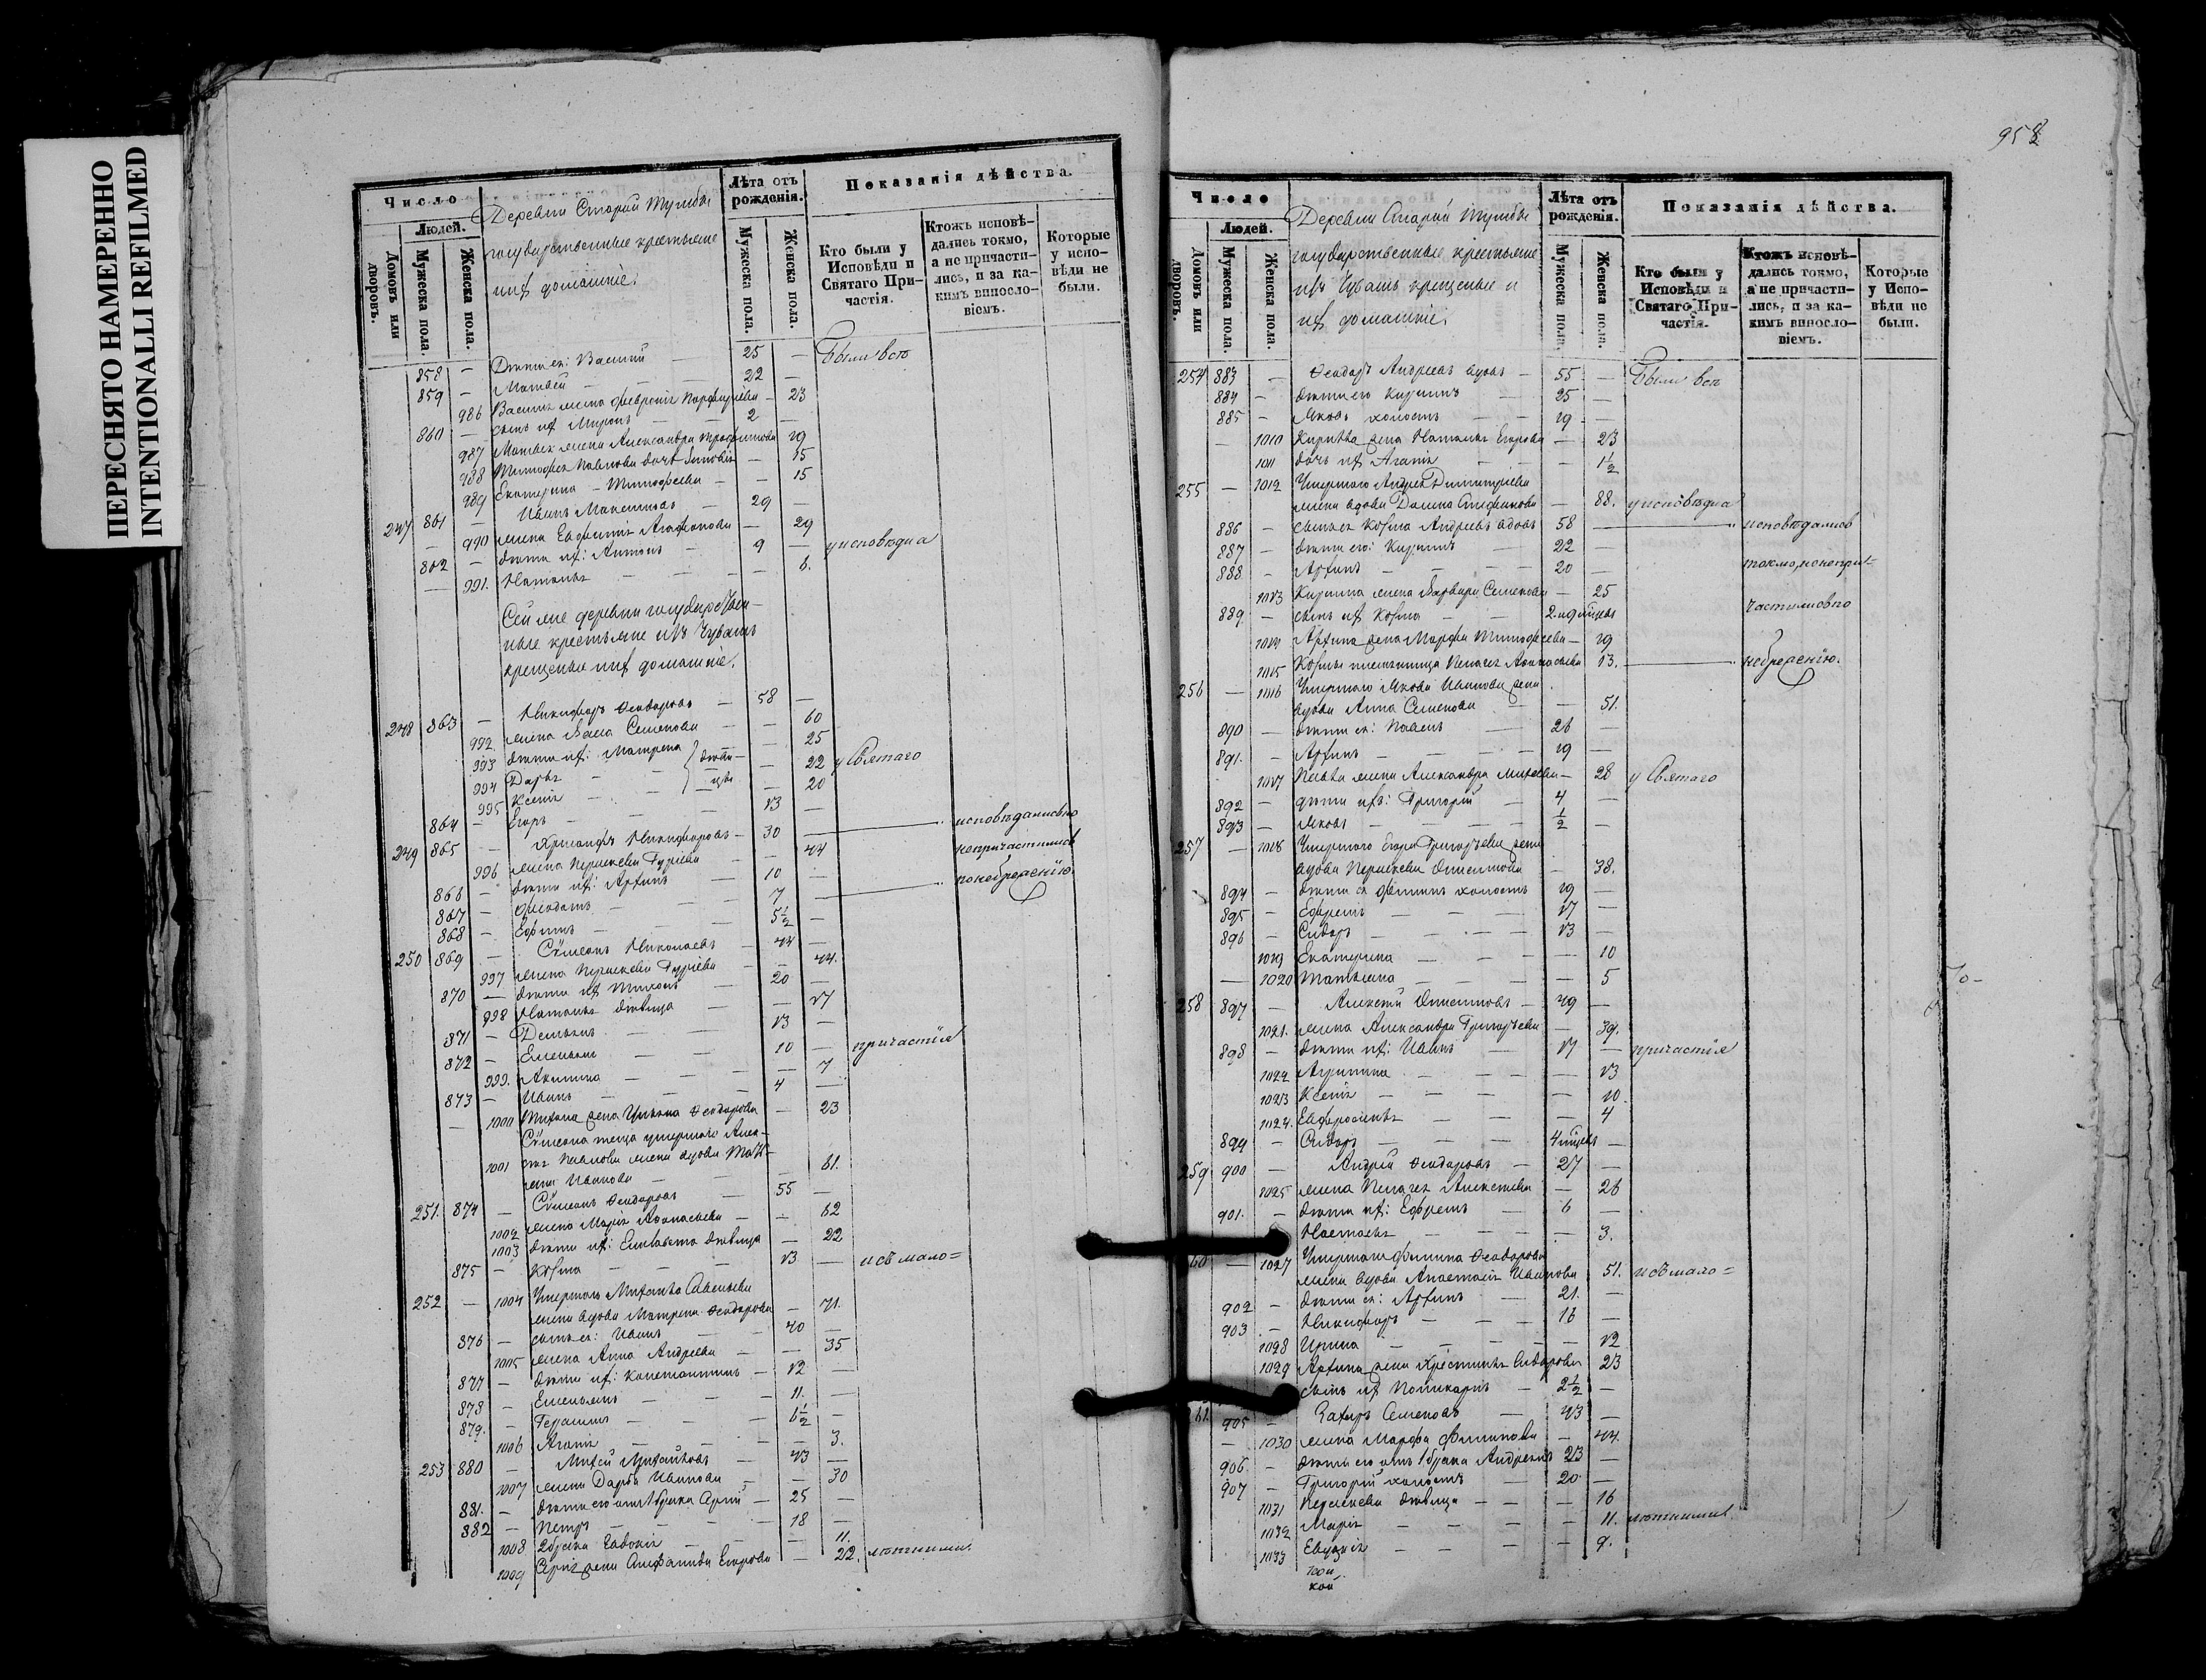 ПЕРЕСНЯТО НАМЕРЕННО
INTENTIONALLI REFILMED
Число
Людей.
Домовъ или дворовъ.
Мужеска пола.
Женска пола.
Деревни Старой Тумбы
государственные крестьяне
и их домашніе.
Лѣта отъ рожденія.
Мужеска пола.
Женска пола.
Показанія дѣйства.
Кто были у Исповѣди и Святаго Причастія.
Ктожъ исповѣдались токмо, а не причастились, и за какимъ винословіемъ.
Которые у исповѣди не были.
858 — Дѣти ея: Василій — 25 — Были всѣ
859 — Матвей — 22 —
986 Василья жена Феврония Порфирьева — 23
860 — сынъ их Миронъ — 2 —
987 Матвея жена Александра Трофимова 19
988 Тимофея Павлова дочь — 15
989 Екатерина — Тимофеева — 15
247 861 — Иванъ Максимовъ — 29 —
— 990 жена Евфимія Агафонова — 29
862 — дѣти их: Антонъ — 9 — у исповѣди
— 991. Наталья — 6.
Сей же деревни государствен-
ные крестьяне изъ Чувашъ
крещеные и их домашніе.
248 863 — Никифоръ Феодоровъ — 58 —
992. жена Семенова — 60
993 дѣти их: Матрена — 25
994 Дарья — } дѣви- — 22 у Святаго
995 Ксенія — } цы — 20
864 — Егоръ — 13 —
249 865 — Никифоровъ — 30 — исповѣдались но
996 жена Параскева Гурьева — 44 непричастились
866 — дѣти их: Архипъ — 10 — понебреженію.
867 — Феодотъ — 7 —
868 — Ефимъ — 5½ —
250 869 — Сѵмеонъ Николаевъ — 44 —
997 жена Параскева Гурьева — 44.
870 — дѣти их Тихонъ — 20 —
998 Наталья дѣвица — 17
871 — Демьянъ — 13 —
872 — Емельянъ — 10 — причастія
999. Акилина — 7
873 — Иванъ — 4 —
— 1000 Тихона жена Ульяна Феодорова — 23
Сѵмеона теща умершаго
1001 Павлова жена вдова
Иванова — 61.
251. 874 — Сѵмеонъ Феодоровъ — 55 —
1002 жена Марія Афанасьева — 62
1003 дѣти их: Елисавета дѣвица — 22
875 — Козма — 13 — и съ мало=
252 — 1004 Умершаго Михаила Савельева
жена вдова Матрена Феодорова — 71.
876 — сынъ ея: Иванъ — 40 —
1005 жена Анна Андреева — 35
877 — дѣти их: Константинъ — 12 —
878 — Емельянъ — 11. —
879. — Герасимъ — 6½ —
1006 Агапія — 3.
253 880 — Михайловъ — 43 —
1007 жена Дарья Иванова — 30
881. — дѣти его отъ 1 брака Сергій — 25 —
882 — Петръ — 18 —
1008 2 брака — 11.
1009 Сергія жена Степанида Егорова — 22. лѣтними.
958
Число
Людей.
Домовъ или дворовъ.
Мужеска пола.
Женска пола.
Деревни Старой Тумбы
государственные крестьяне
изъ Чувашъ крещеные и
их домашніе.
Лѣта отъ рожденія.
Мужеска пола.
Женска пола.
Показанія дѣйства.
Кто были у Исповѣди и Святаго Причастія.
Ктожъ исповѣдались токмо, а не причастились, и за какимъ винословіемъ.
Которые у Исповѣди не были.
254 883 — Феодоръ Андреевъ вдовъ — 55 — Были всѣ
884 — дѣти его Кирилъ — 25 —
885 — Яковъ холостъ — 19 —
— 1010 Кирилла жена Наталья Егорова — 23
1011 дочь их Агапія — 1½
255 — 1012 Умершаго Андрея Димитріева
жена вдова Стефанова — 88. у исповѣди
886 — сынъ ея Козма Андреевъ вдовъ 58 — исповѣдались
887 — дѣти его: Кирилъ — 22 —
888 — Архипъ — 20 — токмо, но непри-
1013 Кирилла жена Варвара Семенова — 25
889 — сынъ их Козма — 2 недѣли частились по
1014 Архипа жена Марфа Тимофеева — 19
1015 Козмы племянница Пелагея Афанасьева 13. — небреженію.
256 — 1016 Умершаго Якова Иванова жена
вдова Анна Семенова — 51.
890 — дѣти ея: Павелъ — 26 —
891. — Архипъ — 19 —
1017 Павла жена Александра Михеева — 28 у Святаго
892 — дѣти ихъ: Григорій — 4 —
893 — Яковъ — ½ —
257 — 1018 Умершаго Егора Григорьева жена
вдова Параскева Онисимова — 38.
894 — дѣти ея Филипъ холостъ 19 —
895 — Ефремъ — 17 —
896 — Сидоръ — 13 —
1019 Екатерина — 10
— 1020 Татьяна — 5
258 897 — Алексѣй Онисимовъ — 49 —
1021. жена Александра Григорьева — 39.
898 — дѣти их: Иванъ — 17 — причастія
1022 Агрипина — 13
1023 Ксенія — 10.
1024. Евфросинья — 4
899 — Сидоръ — 4 мѣсяц. —
259 900 — Андрей Феодоровъ — 27 —
1025 жена Пелагея Алексѣева — 26
901. — дѣти их: Ефремъ — 6 —
Настасья — 3.
60 — 1027 Умершаго Филипа Феодорова
жена вдова Анастасія Иванова 51. и съ мало=
902 — дѣти ея: Архипъ — 21. —
903 — Никифоръ — 16 —
1028 Ирина — 12
1029 Архипа жена Христина Сидорова 23
сынъ их Поликарпъ — 2½ —
61 905 — Захаръ Семеновъ — 43 —
— 1030 жена Марфа Филипова — 44.
906 — дѣти его отъ 1 брака Андрей 23 —
907 — Григорій холостъ — 20 —
1031 Параскева дѣвица — 16
1032 Марія — 11. лѣтними.
1033 Евдокія — 9.